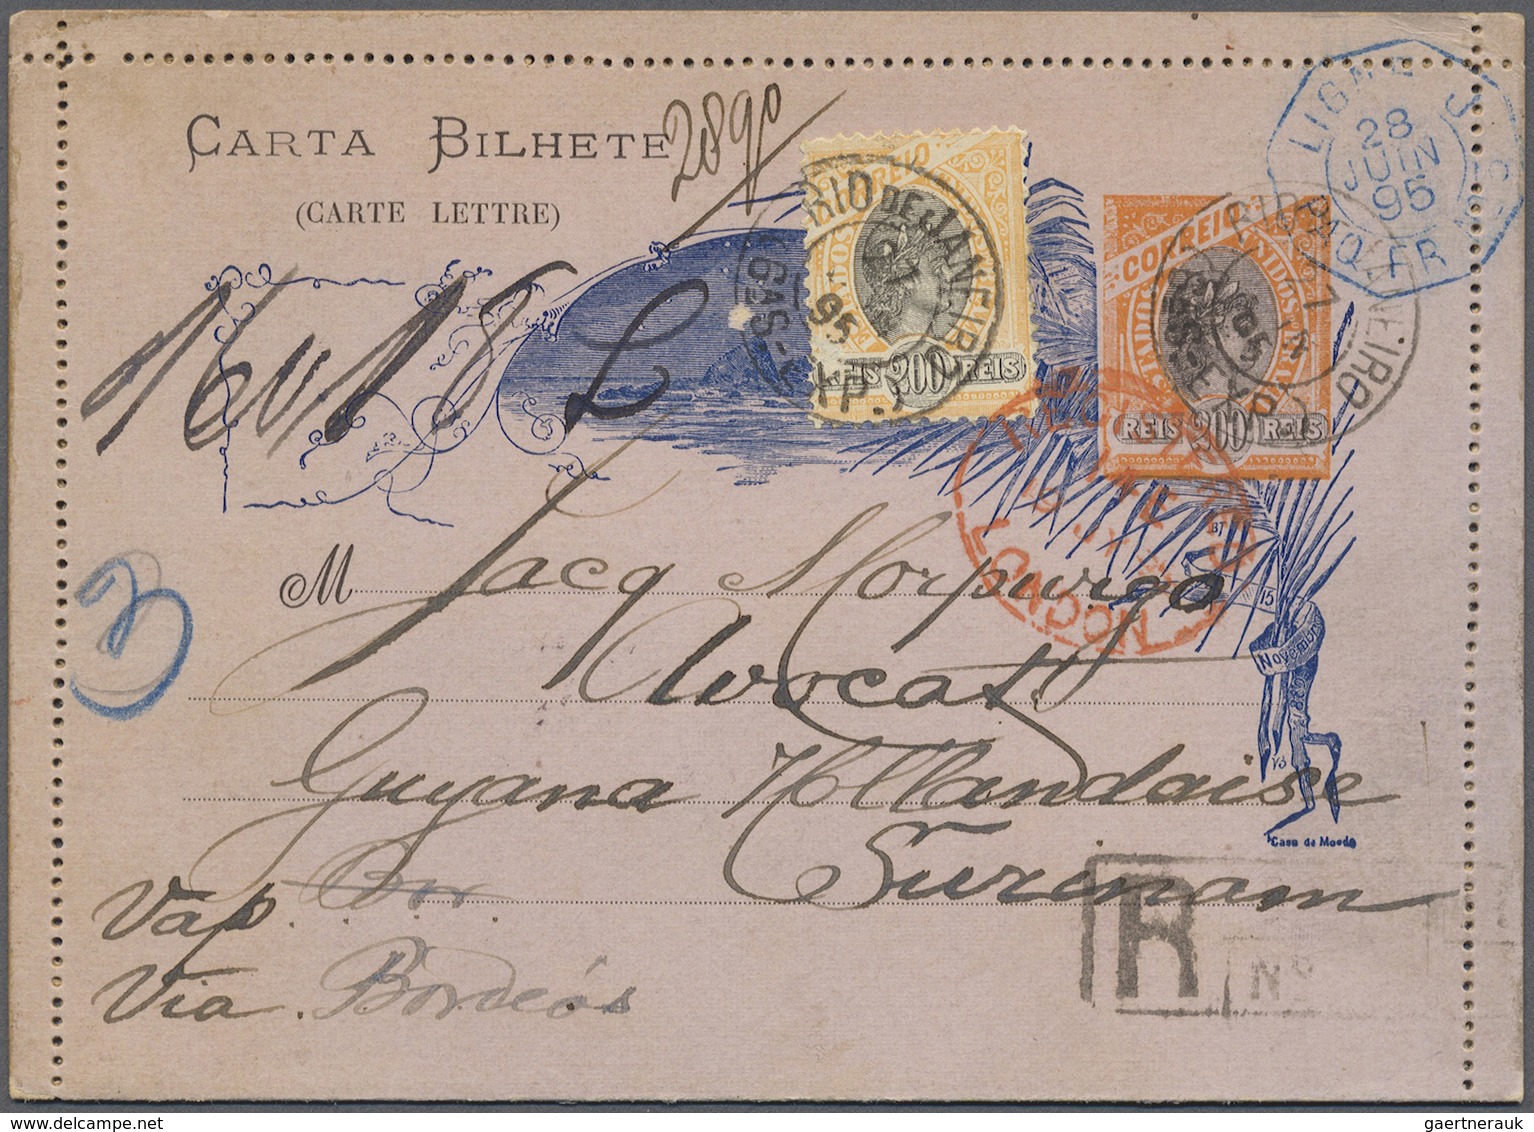 CARTA BILHETE
(CARTE LETTRE)
2890
CORREIO
REIS 200 REIS
RIO DE JANEIRO
95
CORREIO
REIS 200 REIS
LIGNE J
28
JUIN
95
PAQ. FR. Nº
M Jacq Morpurgo
Avocat
Guyana Hollandaise
Surinam
Vap.
Via Bordeós
3
15
Novembro
1889
Casa de Moeda
REGISTERED
LONDON
R
Nº
gaertnerauk